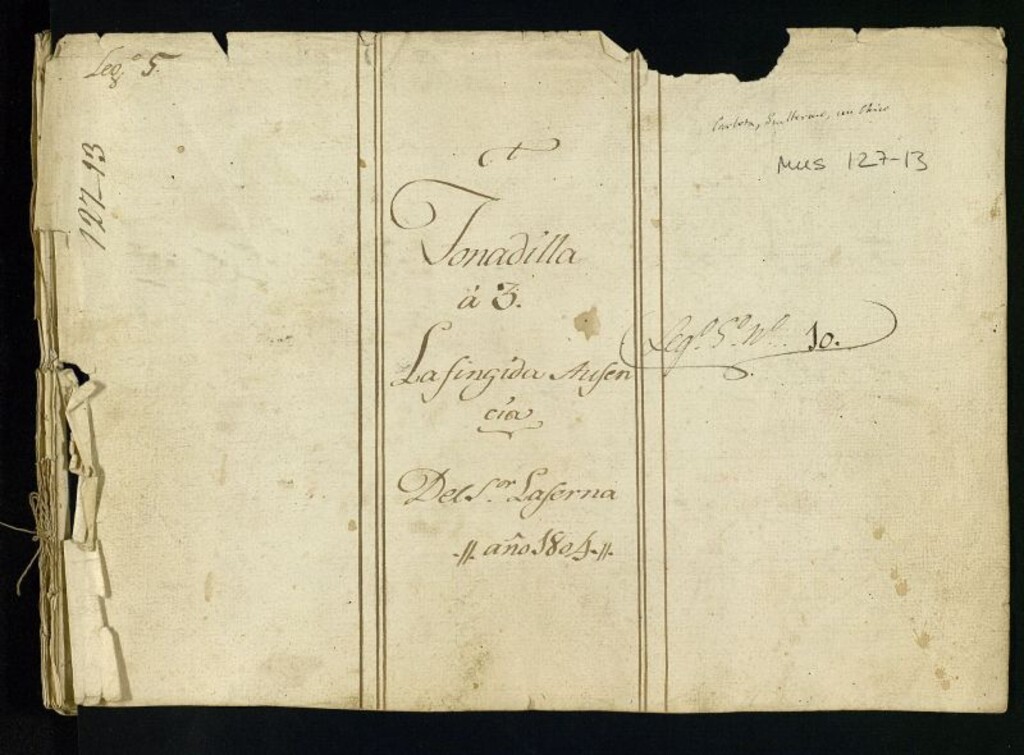 Leg.º 5.
127-13
t
Tonadilla
á 3.
La fingida Ausen
cia
Del S.or Laserna
año 1804
Carlota, Guillermo, un Chico
Mus 127-13
Leg.º 5.º N.º 10.